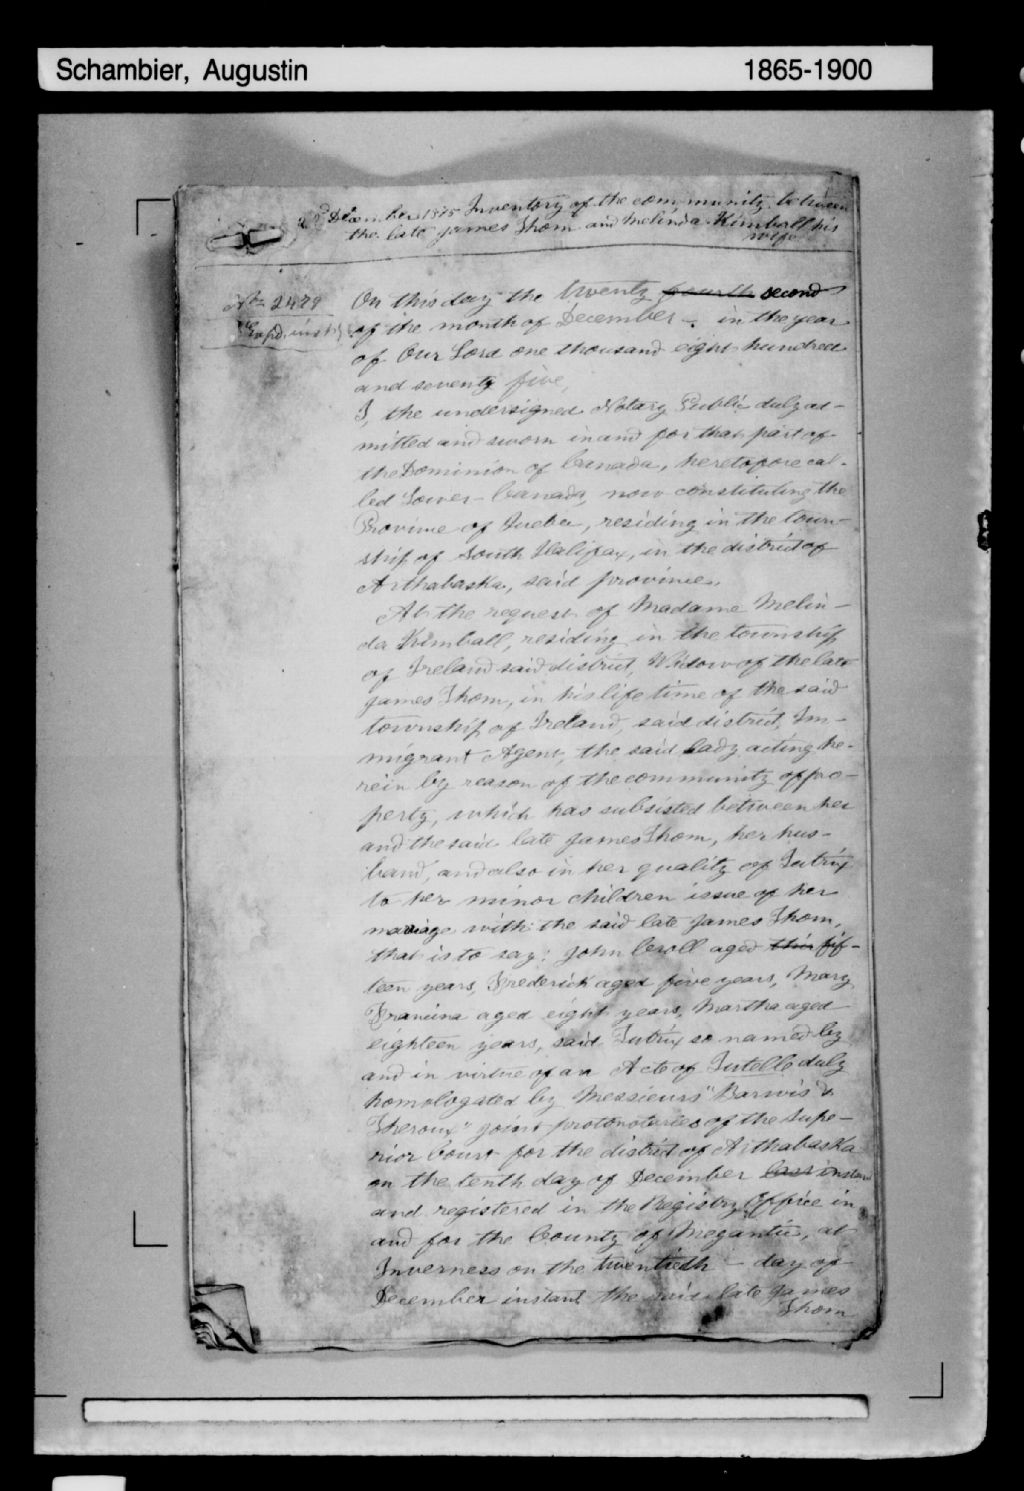 Schambier, Augustin 1865-1900
22d December 1875 Inventory of the community between
the late James Thom and Melinda Kimball his
wife
No 2479
On this day the twenty fourth second
of the month of December - in the year
of Our Lord one thousand eight hundred
and seventy five,
I, the undersigned Notary Public duly ad-
mitted and sworn in and for that part of
the Dominion of Canada, heretofore cal-
led Lower-Canada, now constituting the
Province of Quebec, residing in the town-
ship of South Halifax, in the district of
Arthabaska, said province,
At the request of Madame Melin-
da Kimball, residing in the township
of Ireland said district, Widow of the late
James Thom, in his life time of the said
township of Ireland, said district, Im-
migrant Agent, the said lady acting he-
rein by reason of the community of pro-
perty, which has subsisted between her
and the said late James Thom, her hus-
band, and also in her quality of Tutrix
to her minor children issue of her
marriage with the said late James Thom,
that is to say: John Croll aged thir fif-
teen years, Frederick aged five years, Mary
Francina aged eight years, Martha aged
eighteen years, said Tutrix so named by
and in virtue of an Acte of Tutelle duly
homologated by Messieurs "Barwis &
Theroux" joint protonotaries of the Supe-
rior Court for the district of Arthabaska
on the tenth day of December last instant
and registered in the Registry Office in
and for the County of Megantic, at
Inverness on the twentieth - day of
December instant the said late James
Thom